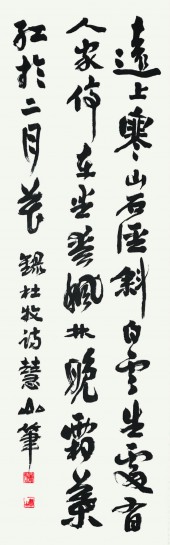 遠上寒山石徑斜白雲生處有
人家停车坐愛楓林晚霜葉
紅於二月花 錄杜牧诗慧山筆